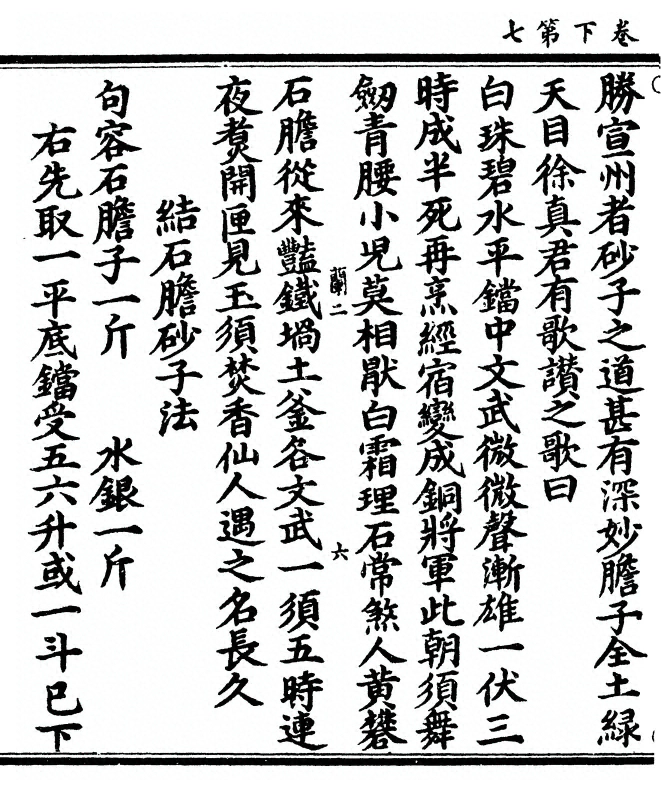 卷下第七
勝宣州者砂子之道甚有深妙膽子全土綠
天目徐真君有歌讃之歌曰
白珠碧水平鐺中文武微微聲漸雄一伏三
時成半死再烹經宿變成銅將軍此朝須舞
劒青腰小児莫相猒白霜理石常煞人黃礬
蘭二
六
石膽從來豔鐵堝土釜各文武一須五時連
夜煑開匣見玉須焚香仙人遇之名長久
結石膽砂子法
句容石膽子一斤 水銀一斤
右先取一平底鐺受五六升或一斗已下